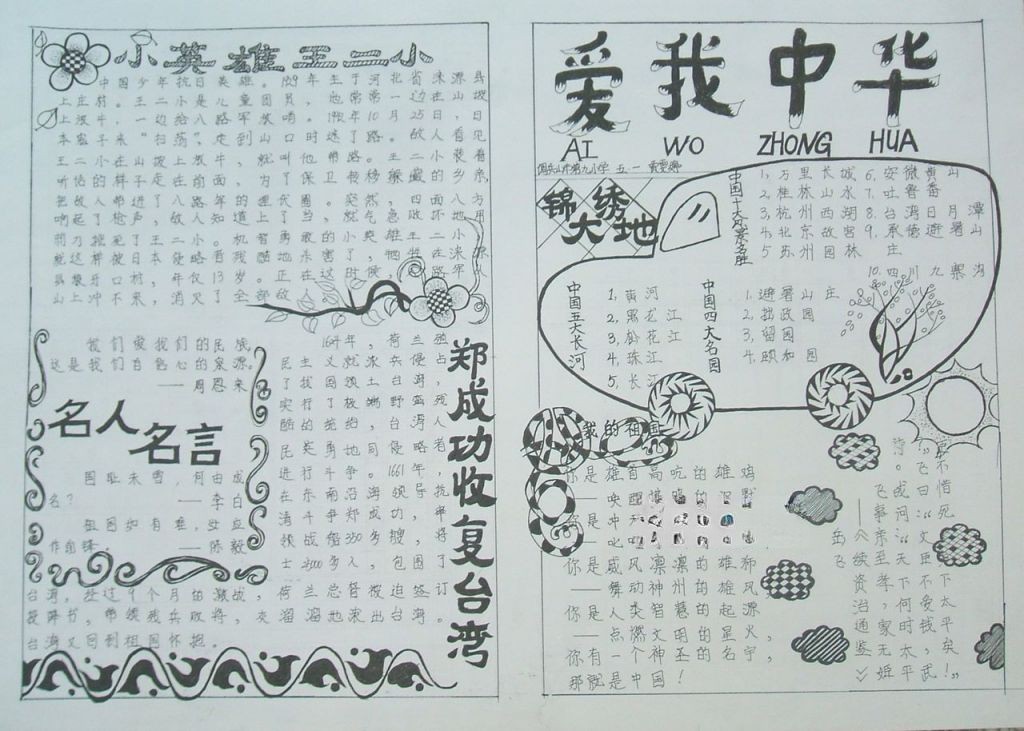 小英雄王二小
中国少年抗日英雄。1929年生于河北省涞源县
上庄村。王二小是儿童团员，他常常一边在山坡
上放牛，一边给八路军放哨。1942年10月25日，日
本鬼子来“扫荡”，走到山口时迷了路。敌人看见
王二小在山坡上放牛，就叫他带路。王二小装着
听话的样子走在前面，为了保卫转移躲藏的乡亲，
把敌人带进了八路军的埋伏圈。突然，四面八方
响起了枪声，敌人知道上了当，就气急败坏地用
刺刀挑死了王二小。机智勇敢的小英雄王二小
就这样被日本侵略者残酷地杀害了，他牺牲在涞源
县狼牙口村，年仅13岁。正在这时候，八路军从
山上冲下来，消灭了全部敌人。
我们爱我们的民族，
这是我们自信心的泉源。
——周恩来
名人
名言
国耻未雪，何由成
名？
——李白
祖国如有难，汝应
作前锋。——陈毅
郑成功收复台湾
1624年，荷兰殖
民主义就派兵侵占
了我国领土台湾，
实行了极端野蛮残
酷的统治，台湾人
民英勇地同侵略者
进行斗争。1661年，
在东南沿海领导抗
清斗争郑成功，率
领战船350多艘，将
士25000多人，包围了
台湾，经过9个月的激战，荷兰总督被迫签订
投降书，带领残兵败将，灰溜溜地滚出台湾。
台湾又回到祖国怀抱。
爱我中华
AI WO ZHONG HUA
锦绣
大地
中国十大风景名胜
1，万里长城 6，安徽黄山
2，桂林山水 7，吐鲁番
3，杭州西湖 8，台湾日月潭
4，北京故宫 9，承德避暑山
5 苏州园林 庄
10，四川九寨沟
中国五大长河
1，黄河
2，黑龙江
3，松花江
4，珠江
5，长江
中国四大名园
1.避暑山庄
2.拙政园
3.留园
4.颐和园
我的祖国
你是雄首高吭的雄鸡
——唤醒
你是
你是威风凛凛的雄狮
——舞动神州的雄风
你是人类智慧的起源
——点燃文明的星火，
你有一个神圣的名字，
那就是中国！